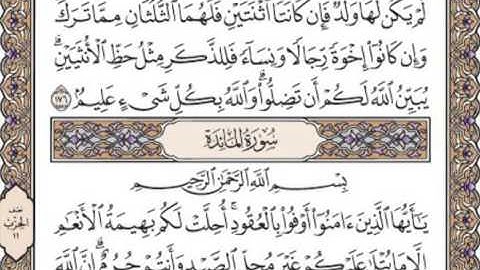 لَّمْ يَكُن لَّهَا وَلَدٌ فَإِن كَانَتَا ٱثْنَتَيْنِ فَلَهُمَا ٱلثُّلُثَانِ مِمَّا تَرَكَ
وَإِن كَانُوٓا۟ إِخْوَةً رِّجَالًا وَنِسَآءً فَلِلذَّكَرِ مِثْلُ حَظِّ ٱلْأُنثَيَيْنِ
يُبَيِّنُ ٱللَّهُ لَكُمْ أَن تَضِلُّوا۟ وَٱللَّهُ بِكُلِّ شَىْءٍ عَلِيمٌۢ ١٧٦
سُورَةُ المَائِدَةِ
بِسْمِ ٱللَّهِ ٱلرَّحْمَٰنِ ٱلرَّحِيمِ
يَٰٓأَيُّهَا ٱلَّذِينَ ءَامَنُوٓا۟ أَوْفُوا۟ بِٱلْعُقُودِ أُحِلَّتْ لَكُم بَهِيمَةُ ٱلْأَنْعَٰمِ
إِلَّا مَا يُتْلَىٰ عَلَيْكُمْ غَيْرَ مُحِلِّى ٱلصَّيْدِ وَأَنتُمْ حُرُمٌ إِنَّ ٱللَّهَ
نصف
الحزب
١١